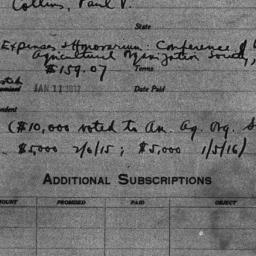 Collins, Paul V.
State
Expenses & Honorarium: Conference of
Agricultural Organization Society,
$159.07 Terms
JAN 11 1917 Date Paid
($10,000 voted to Am. Ag. Org. S
$5000 2/6/15; $5,000 1/5/16)
ADDITIONAL SUBSCRIPTIONS
OUNT PROMISED PAID OBJECT